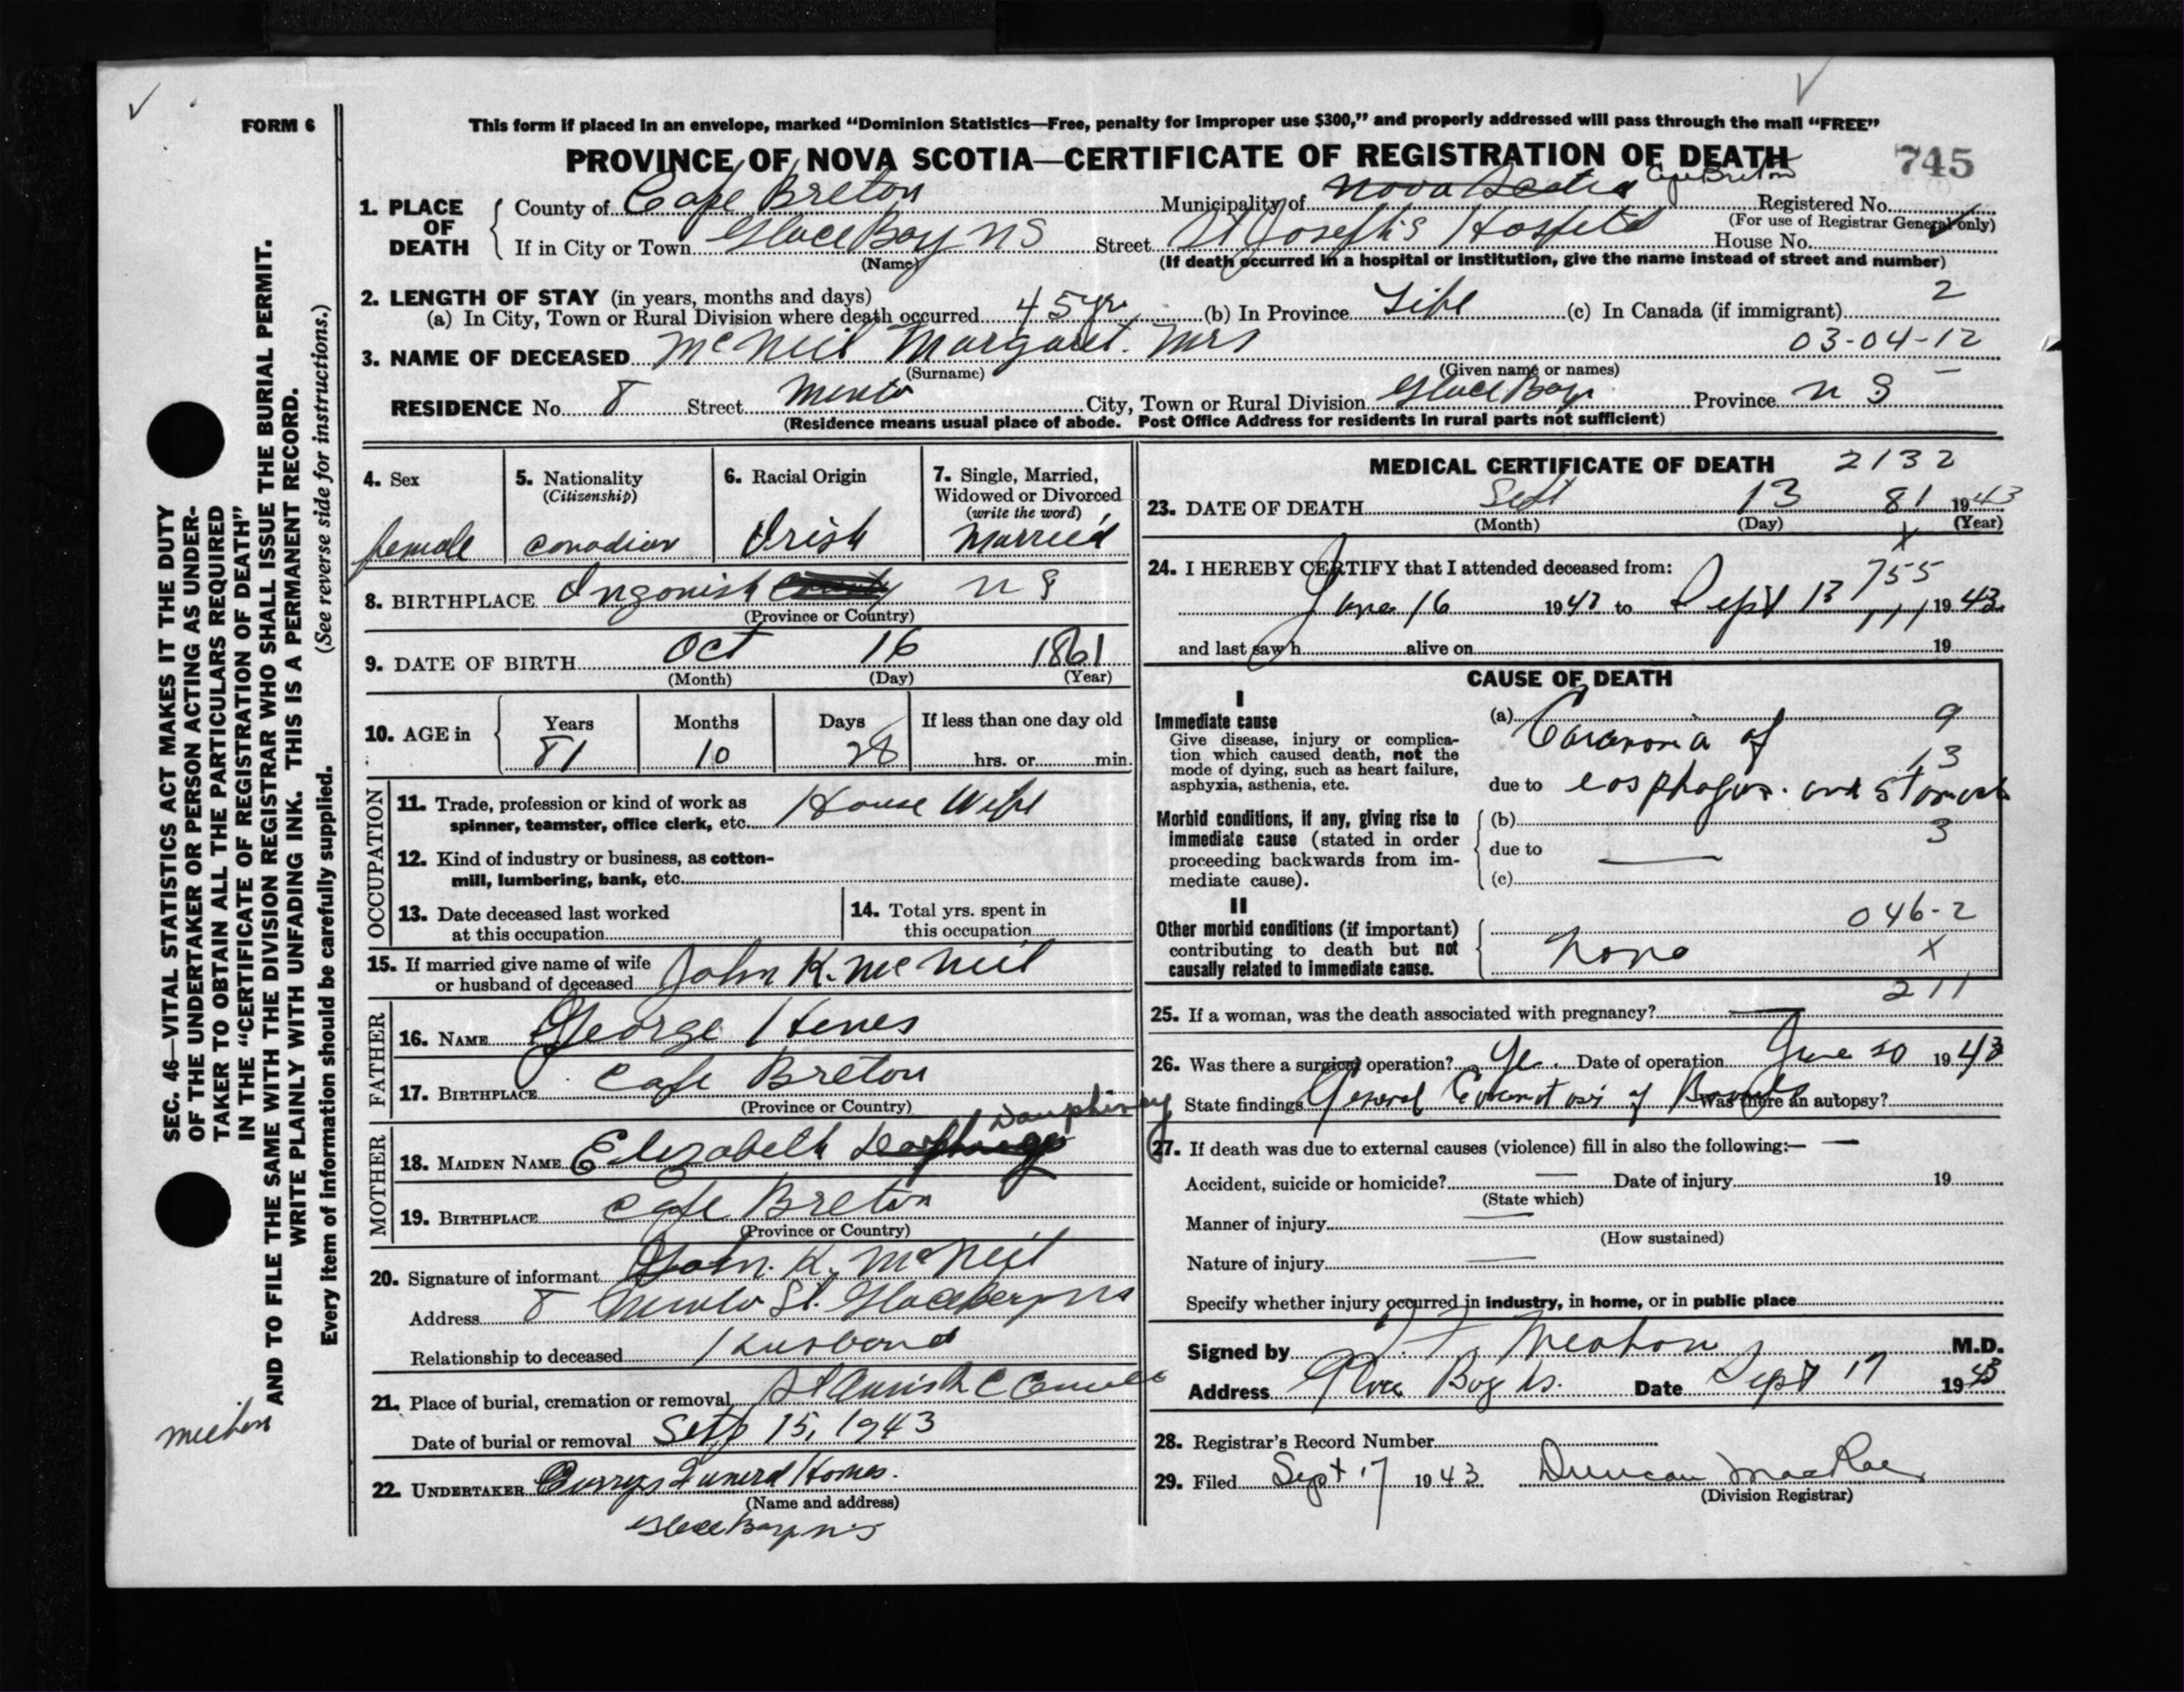 FORM 6
This form if placed in an envelope, marked “Dominion Statistics—Free, penalty for improper use $300,” and properly addressed will pass through the mail “FREE”
PROVINCE OF NOVA SCOTIA—CERTIFICATE OF REGISTRATION OF DEATH
745
1. PLACE OF DEATH
County of Cape Breton Municipality of Nova Scotia Cape Breton Registered No.
(For use of Registrar General only)
If in City or Town Glace Bay N S Street St Joseph's Hospital House No.
(Name) (If death occurred in a hospital or institution, give the name instead of street and number)
2. LENGTH OF STAY (in years, months and days)
(a) In City, Town or Rural Division where death occurred 45 yr (b) In Province Life (c) In Canada (if immigrant) 2
3. NAME OF DECEASED McNeil Margaret. Mrs 03-04-12
(Surname) (Given name or names)
RESIDENCE No. 8 Street Minto City, Town or Rural Division Glace Bay Province N S
(Residence means usual place of abode. Post Office Address for residents in rural parts not sufficient)
4. Sex
female
5. Nationality
(Citizenship)
Canadian
6. Racial Origin
Irish
7. Single, Married,
Widowed or Divorced
(write the word)
Married
8. BIRTHPLACE Ingonish N S
(Province or Country)
9. DATE OF BIRTH Oct 16 1861
(Month) (Day) (Year)
10. AGE in
Years Months Days If less than one day old
81 10 28 hrs. or min.
OCCUPATION
11. Trade, profession or kind of work as
spinner, teamster, office clerk, etc. House Wife
12. Kind of industry or business, as cotton-
mill, lumbering, bank, etc.
13. Date deceased last worked
at this occupation
14. Total yrs. spent in
this occupation
15. If married give name of wife
or husband of deceased John K. McNeil
FATHER
16. NAME George Hines
17. BIRTHPLACE Cape Breton
(Province or Country)
MOTHER
Dauphiney
18. MAIDEN NAME Elizabeth
19. BIRTHPLACE Cape Breton
(Province or Country)
20. Signature of informant John. K. McNeil
Address 8 Minto St. Glace Bay NS
Relationship to deceased Husband
21. Place of burial, cremation or removal
Date of burial or removal Setp 15, 1943
22. UNDERTAKER Currys Funeral Homes.
(Name and address)
Glace Bay N.S
MEDICAL CERTIFICATE OF DEATH 2132
23. DATE OF DEATH Sept 13 81 1943
(Month) (Day) (Year)
X
24. I HEREBY CERTIFY that I attended deceased from:
755
June 16 1943 to Sept 13 1943
111
and last saw h alive on 19
CAUSE OF DEATH
I
Immediate cause
Give disease, injury or complica-
tion which caused death, not the
mode of dying, such as heart failure,
asphyxia, asthenia, etc.
(a) Carcinoma of 9
13
due to eosphagus. and stomach
Morbid conditions, if any, giving rise to
immediate cause (stated in order
proceeding backwards from im-
mediate cause).
(b)
3
due to —
(c)
II
Other morbid conditions (if important)
contributing to death but not
causally related to immediate cause.
046-2
None X
211
25. If a woman, was the death associated with pregnancy? —
26. Was there a surgical operation? Yes. Date of operation June 20 1943
State findings General of Was there an autopsy?
27. If death was due to external causes (violence) fill in also the following:— —
Accident, suicide or homicide? — Date of injury 19
(State which)
Manner of injury —
(How sustained)
Nature of injury —
Specify whether injury occurred in industry, in home, or in public place
Signed by M.D.
Address Glace Bay NS. Date Sept 17 1943
28. Registrar's Record Number
29. Filed Sept 17 1943 Duncan MacRae
(Division Registrar)
SEC. 46—VITAL STATISTICS ACT MAKES IT THE DUTY
OF THE UNDERTAKER OR PERSON ACTING AS UNDER-
TAKER TO OBTAIN ALL THE PARTICULARS REQUIRED
IN THE “CERTIFICATE OF REGISTRATION OF DEATH”
AND TO FILE THE SAME WITH THE DIVISION REGISTRAR WHO SHALL ISSUE THE BURIAL PERMIT.
WRITE PLAINLY WITH UNFADING INK. THIS IS A PERMANENT RECORD.
Every item of information should be carefully supplied. (See reverse side for instructions.)